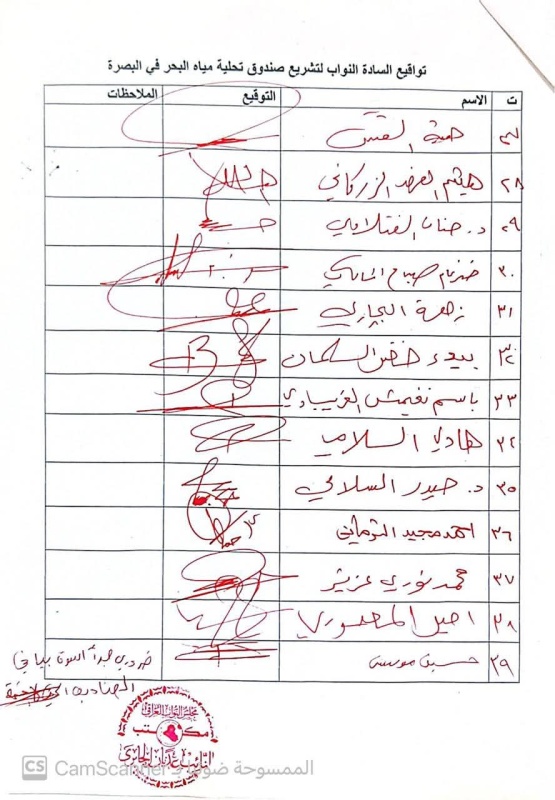 تواقيع السادة النواب لتشريع صندوق تحلية مياه البحر في البصرة
ت الاسم التوقيع الملاحظات
٢٧
٢٨ هيثم الزركاني
٢٩ د. حنان الفتلاوي
٣٠ ضرغام صباح المالكي
٣١ زهرة البجاري
٣٢ بيداء خضر السلمان
٣٣ باسم نغيمش الغريباوي
٣٤ هادي السلامي
٣٥ د. حيدر السلامي
٣٦ احمد مجيد
٣٧ محمد نوري عزيز
٣٨ المنصوري
٣٩ حسين موسى
مجلس النواب العراقي
مكتب
النائب عدنان الجابري
CS CamScanner الممسوحة ضوئيا بـ